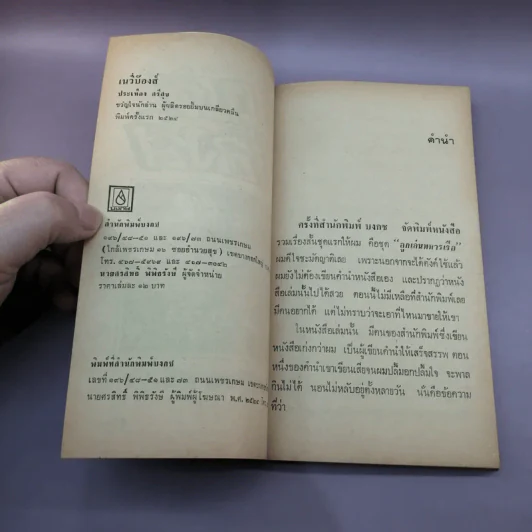 เนวีบ๊องส์
ประเทือง ศรีสุข
ขวัญใจนักอ่าน ผู้ผลิตรอยยิ้มบนเกลียวคลื่น
พิมพ์ครั้งแรก ๒๕๒๔
สำนักพิมพ์บงกช
ถนนเพชรเกษม
(ใกล้เพชรเกษม ๑๖ ซอยอำนวยสุข)
นายศรสิทธิ์ พิพิธรังษี ผู้จัดจำหน่าย
ราคาเล่มละ ๑๒ บาท
พิมพ์ที่สำนักพิมพ์บงกช
เลขที่ ๑๙๖/๔๘-๕๑ และ ๗๓ ถนนเพชรเกษม
นายศรสิทธิ์ พิพิธรังษี ผู้พิมพ์ผู้โฆษณา พ.ศ. ๒๕๒๔
คำนำ
ครั้งที่สำนักพิมพ์ บงกช จัดพิมพ์หนังสือ
รวมเรื่องสั้นชุดแรกให้ผม คือชุด "ลูกเก่นทหารเรือ"
ผมดีใจชะมัดญาติเลย เพราะนอกจากจะได้ตังค์ใช้แล้ว
ผมยังไม่ต้องเขียนคำนำหนังสือเอง และปรากฏว่าหนัง
สือเล่มนั้นไปได้สวย ตอนนี้ไม่มีเหลือที่สำนักพิมพ์เลย
มีคนอยากได้ แต่ไม่ทราบว่าจะเอาที่ไหนมาขายให้เขา
ในหนังสือเล่มนั้น มีคนของสำนักพิมพ์ซึ่งเขียน
หนังสือเก่งกว่าผม เป็นผู้เขียนคำนำให้เสร็จสรรพ ตอน
หนึ่งของคำนำเขาเขียนเสียจนผมปลื้มอกปลื้มใจ จะพาล
กินไม่ได้ นอนไม่หลับอยู่ตั้งหลายวัน นั่นคือข้อความ
ที่ว่า